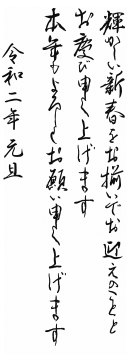 輝かしい新春をお揃いでお迎えのことと
お慶び申し上げます
本年もよろしくお願い申し上げます
令和二年元旦